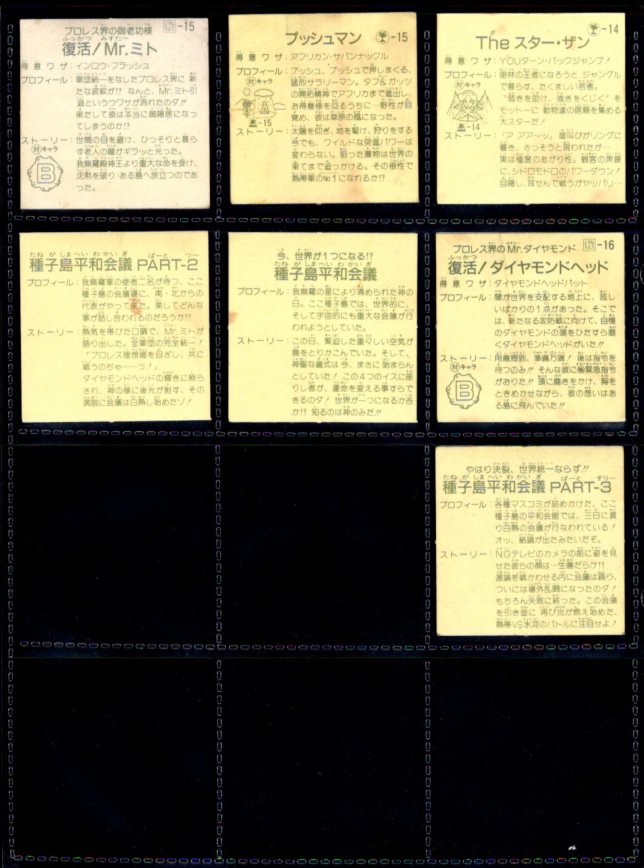 -15
プロレス界の御老功様
ふっかつ みすたー
復活!Mr.ミト
得意ワザ:インロウ・フラッシュ
プロフィール:軍団統一をなしたプロレス界に 新
たな波紋が!? なんと、Mr.ミト引
退というウワサが流れたのダ!!
果たして彼は本当に御隠居になっ
てしまうのか!?
ストーリー:世間の目を避け、ひっそりと暮ら
対キャラ
す老人の瞳がギラッと光った。
B
我無羅殿神王より重大な命を受け、
沈黙を破り ある島へ旅立つのであ
った。
-15
プッシュマン
得意ワザ:アフリカン・サバンナックル
プロフィール:プッシュ、プッシュで押しまくる、
対キャラ
猛烈サラリーマン。タフ&ガッツ
の開拓精神でアフリカまで進出し、
お得意様を回るうちに…野性が目
-15
覚め、彼は草原の風になった。
ストーリー:太陽を仰ぎ、地を駆け、狩りをする
今でも、ワイルドな突進パワーは
変わらない。狙った書物は世界の
果てまで追っかける。その根性で
熱帯軍のNo1になれるか!?
-14
ざ
Theスター・ザン
得意ワザ:YOUターン・バックジャンプ!
プロフィール:樹林の王者になろうと ジャングル
対キャラ
で暮らす、たくましい若者。
"弱きを助け、強きをくじく"を
モットーに 動物達の信頼を集める
-14
大スターだ!
ストーリー:「ア アア〜ッ」 雄叫びがリングに
響き、さっそうと現われたが…
実は極度のあがり性。観客の声援
に、シドロモドロのパワーダウン!
目隠し、耳せんで戦うがヤッパリ…
たねがしまへいわかいぎ ぱーと つー
種子島平和会議 PART-2
プロフィール:我無羅軍の使者二名が待つ、ここ
種子島の会議場に、南・北からの
代表がやって来た。果してどんな
事が話し合われるのだろうか!?
ストーリー:熱気を帯びた口調で、Mr.ミトが
語り出した。全軍団の完全統一!
「プロレス理想郷を目ざし、共に
戦うのぢゃ……っ!」
ダイヤモンドヘッドの輝きに照ら
され、神の様に後光が射す、その
演説に会議は白熱し始めたゾ!
今、世界が1つになる!?
たねがしまへいわかいぎ
種子島平和会議
プロフィール:我無羅の星により清められた神の
日。ここ種子島では、世界的に、
そして宇宙的にも重大な会議が行
われようとしていた。
ストーリー:この日、緊迫した重々しい空気が
島をとりかこんでいた。そして、
神聖な儀式は 今、まさに 始まらん
としていた!この4つのイスに座
りし者が、運命を変える事すらで
きるのダ! 世界が一つになるか否
か!? 知るのは神のみだ!!
-16
プロレス界のMr.ダイヤモンド
ふっかつ
復活!ダイヤモンドヘッド
得意ワザ:ダイヤモンドヘッドバット
プロフィール:闇が世界を支配する地上に、眩し
いばかりの1点があった。そこで
は、新たなる攻防戦に向けて、自慢
のダイヤモンドの頭をひたすら磨
くダイヤモンドヘッドがいた!!
ストーリー:用意周到、準備万端!後は指令を
対キャラ
待つのみ!! そんな彼に㊙緊急指令
B
がありた!! 頭に磨きをかけ、胸を
ときめかせながら、彼の想いはあ
る島に飛んでいた!!
やはり決裂、世界統一ならず!!
たねがしまへいわかいぎ ぱーと すりー
種子島平和会議 PART-3
プロフィール:各種マスコミが詰めかけた、ここ
種子島の平和会館では、三日に渡
り白熱の会議が行なわれている!
オッ、結論が出たみたいだぞ。
ストーリー:NGテレビのカメラの前に姿を見
せた彼らの顔は…生傷だらけ!?
激論を戦かわせる内に会議は踊り、
ついには場外乱闘になったのダ!
もちろん失敗に終った。この会場
を引き金に 再び虫が燃え始めた、
熱帯VS氷河のバトルに注目せよ!